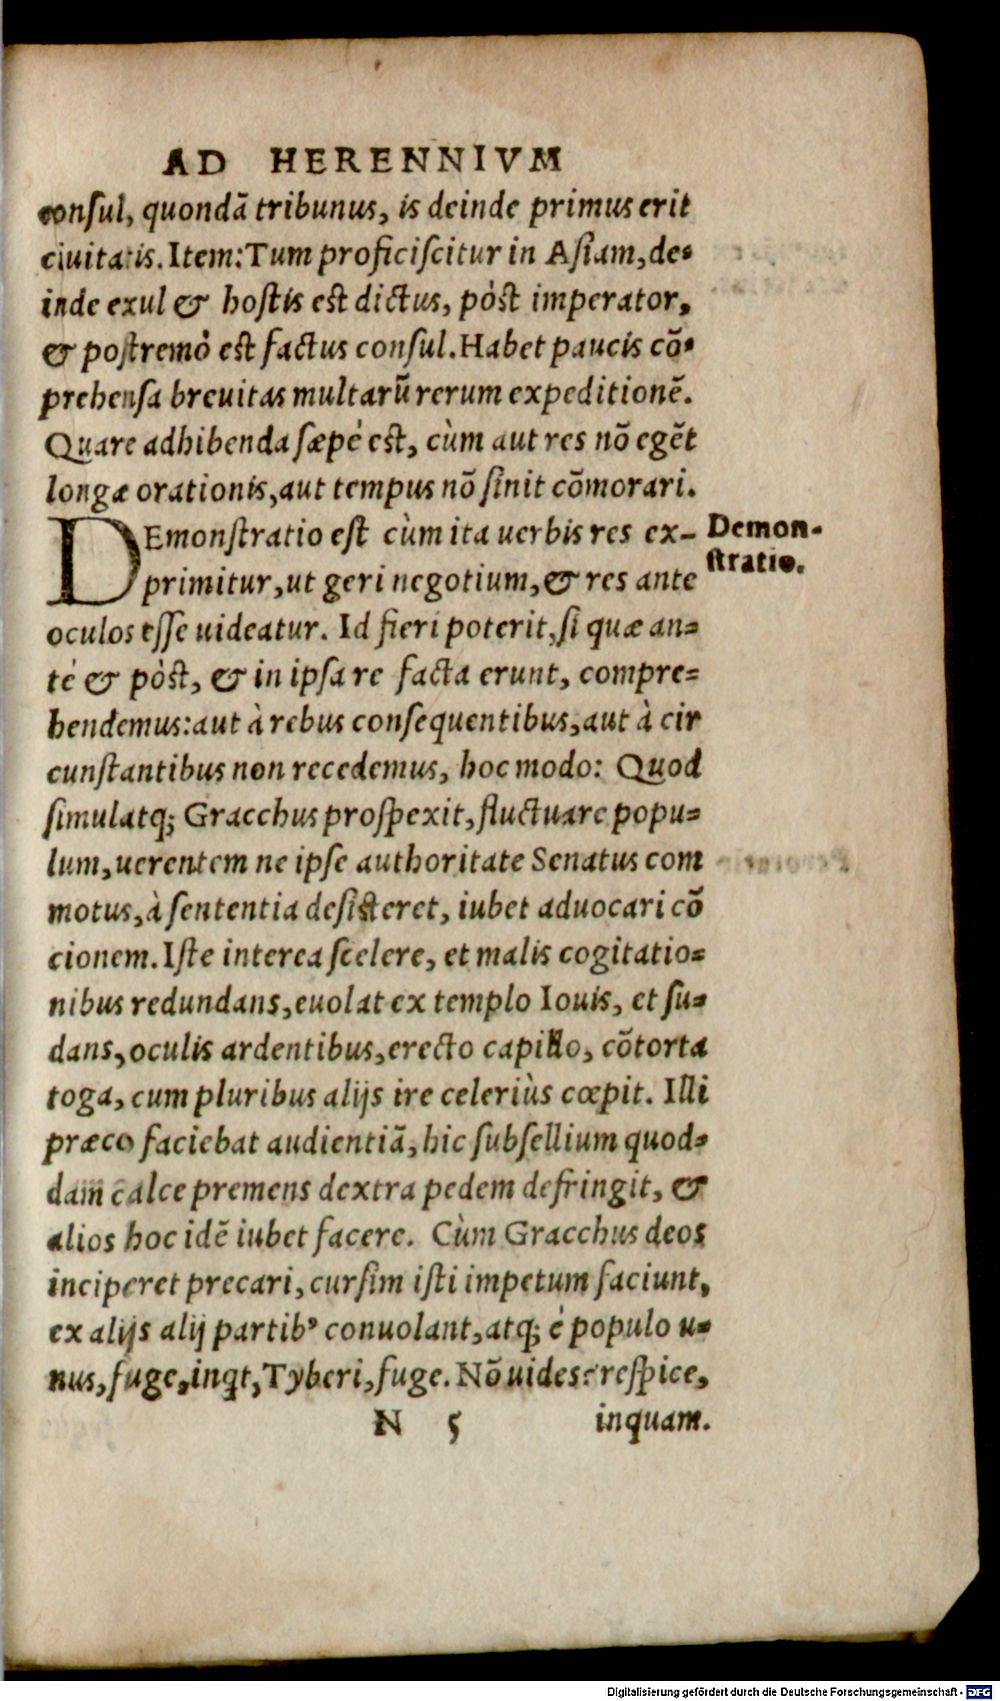 AD HERENNIVM
conſul, quondã tribunus, is deinde primus erit
ciuitatis. Item: Tum proficiſcitur in Aſiam, de-
inde exul & hoſtis eſt dictus, pòſt imperator,
& poſtremò eſt factus conſul. Habet paucis cõ-
prehenſa breuitas multarũ rerum expeditionẽ.
Quare adhibenda ſæpè eſt, cùm aut res nõ egẽt
longæ orationis, aut tempus nõ ſinit cõmorari.
DEmonſtratio eſt cùm ita uerbis res ex-
primitur, ut geri negotium, & res ante
Demon-
ſtratio.
oculos eſſe uideatur. Id fieri poterit, ſi quæ an-
tè & pòſt, & in ipſa re facta erunt, compre-
hendemus: aut à rebus conſequentibus, aut à cir
cunſtantibus non recedemus, hoc modo: Quod
ſimulatq; Gracchus proſpexit, fluctuare popu-
lum, uerentem ne ipſe authoritate Senatus com
motus, à ſententia deſiſteret, iubet aduocari cõ
cionem. Iſte interea ſcelere, et malis cogitatio-
nibus redundans, euolat ex templo Iouis, et ſu-
dans, oculis ardentibus, erecto capillo, cõtorta
toga, cum pluribus alijs ire celeriùs cœpit. Illi
præco faciebat audientiã, hic ſubſellium quod-
dam calce premens dextra pedem defringit, &
alios hoc idẽ iubet facere. Cùm Gracchus deos
inciperet precari, curſim iſti impetum faciunt,
ex alijs alij partibꝰ conuolant, atq; è populo u-
nus, fuge, inqt, Tyberi, fuge. Nõ uides? reſpice,
N 5 inquam.
Digitalisierung gefördert durch die Deutsche Forschungsgemeinschaft - DFG